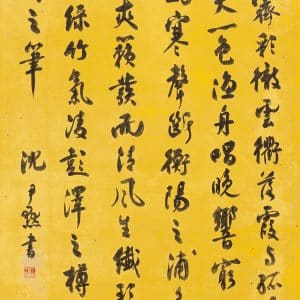 霽彩徹雲衢落霞与孤
天一色漁舟唱晚響窮
寒聲斷衡陽之浦
爽籟發而清風生纖歌
綠竹氣凌彭澤之樽
之筆
沈尹默書